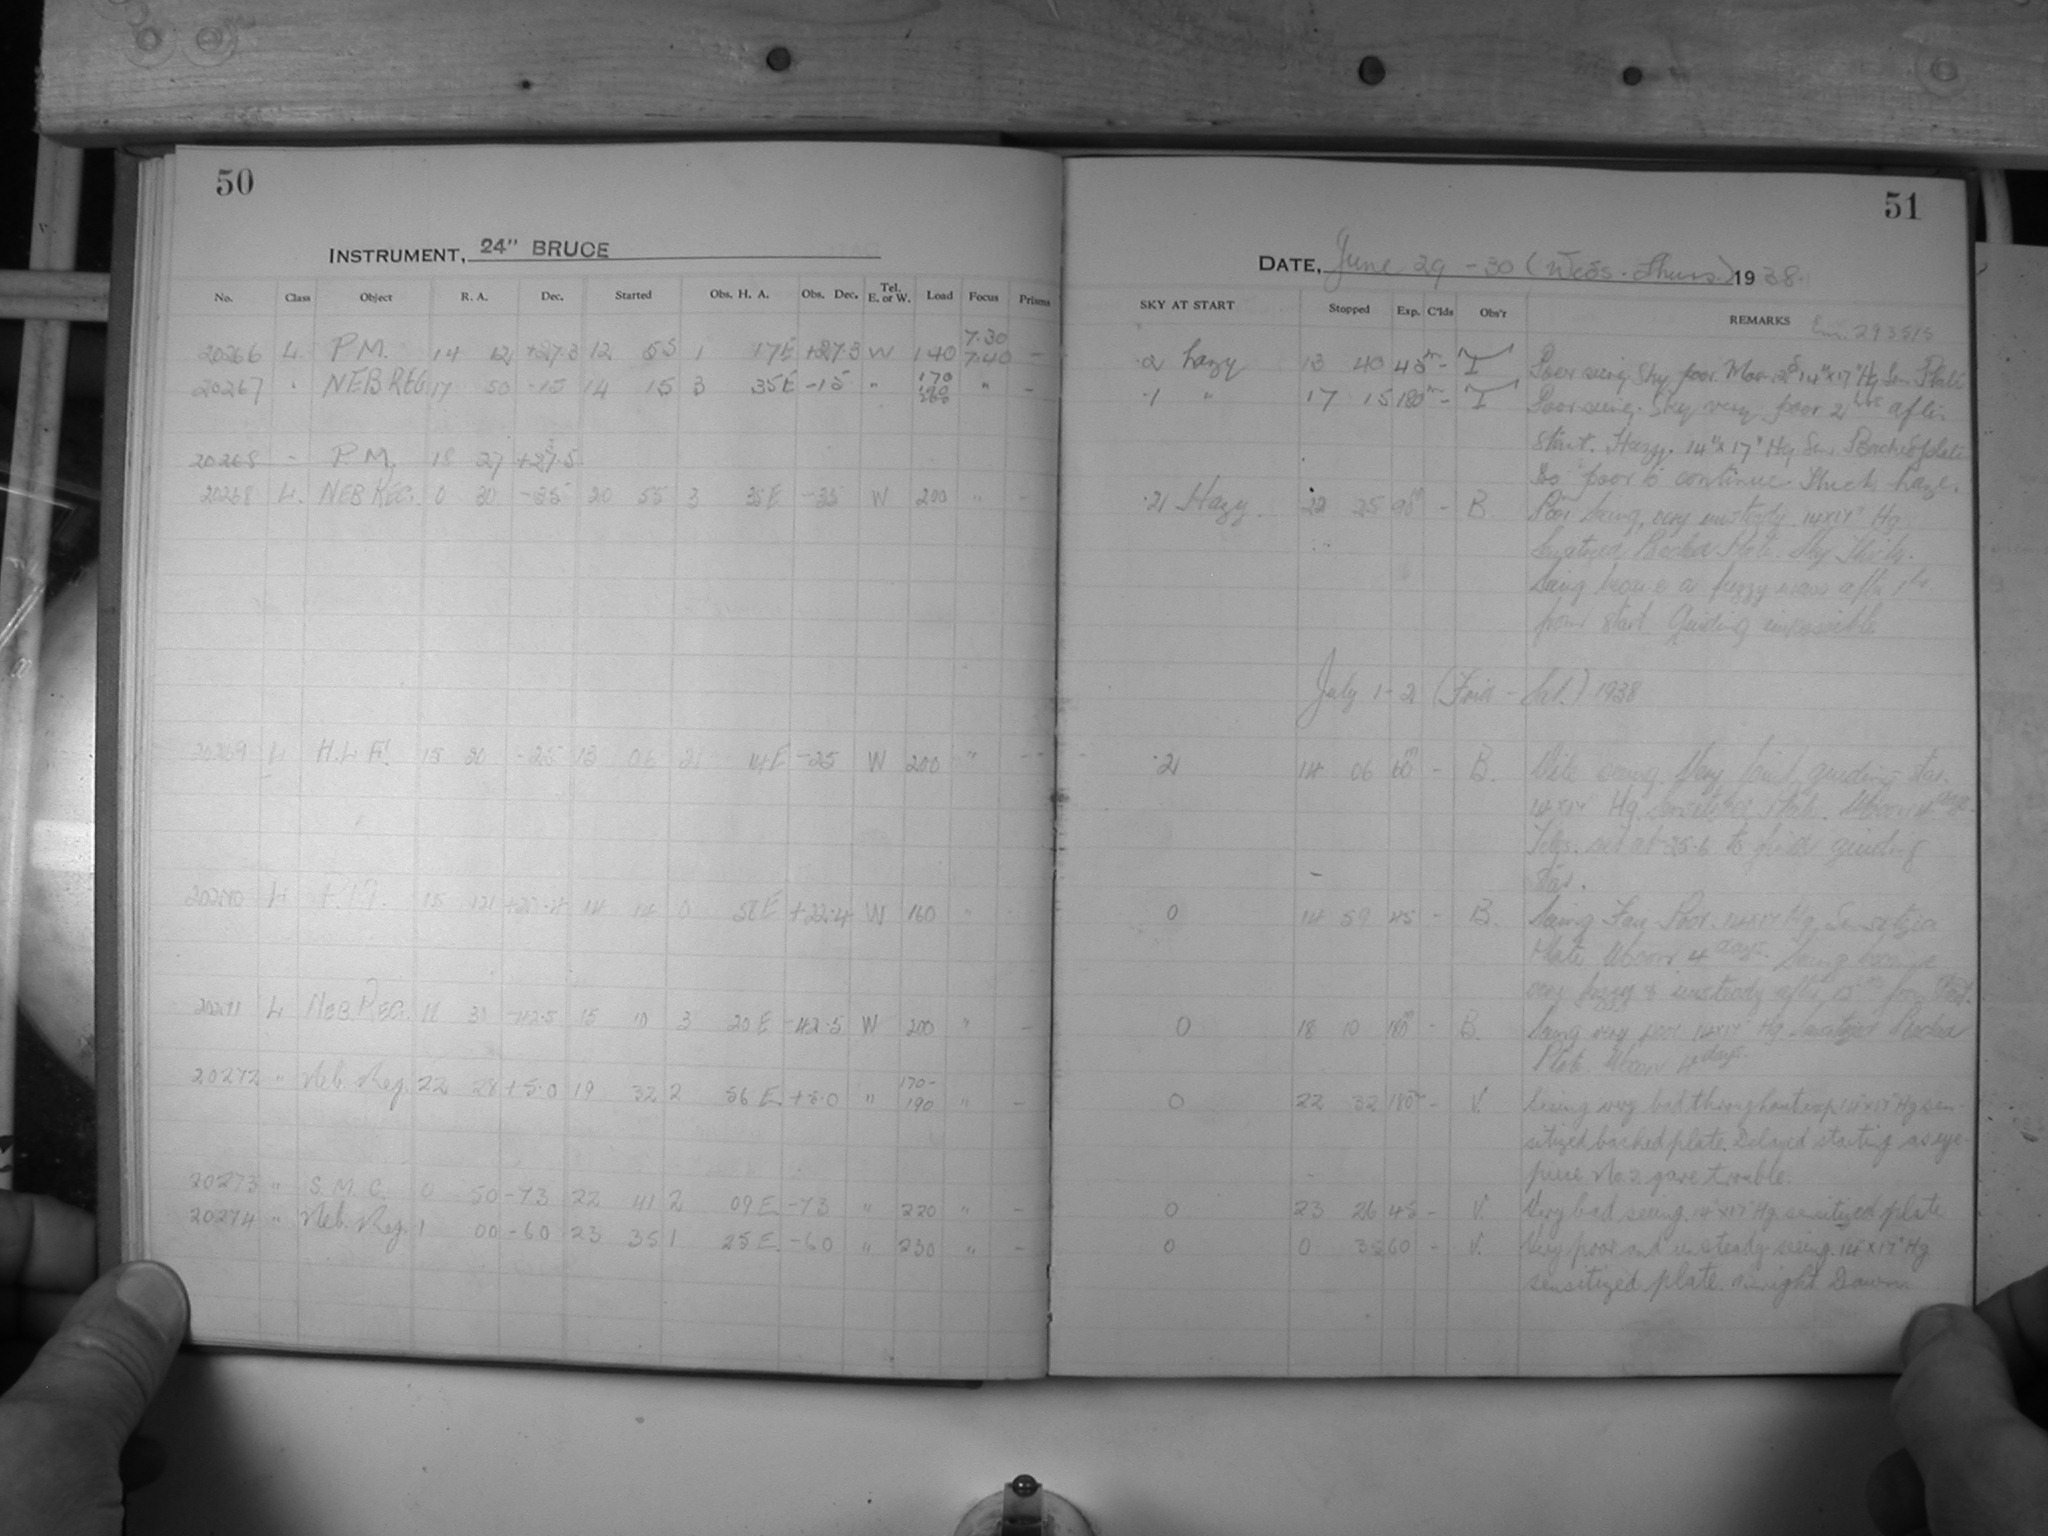 50
INSTRUMENT, 24" BRUCE
No. Class Object R. A. Dec. Started Obs. H. A. Obs. Dec. Tel. E. or W. Load Focus Prisms
20266 L P.M. 14 12 +27.3 12 55 1 17E +27.3 W 140 7.30 7.40 —
20267 " NEB REG 17 50 -15 14 15 3 35E -15 " 170 190 " —
20268 - P.M. 18 27 +27.5
20268 L. NEB REG. 0 30 -35 20 55 3 35E -35 W 200 " -
20269 L H.L.F. 15 20 -25 13 06 2 14E -25 W 200 "
20270 L 15 14 14 0 58E +22.4 W 160 " -
20271 L NEB. REG. 18 31 -42.5 15 10 3 20E -42.5 W 200 " -
20272 " Neb. Reg. 22 28 +5.0 19 32 2 56 E. +5.0 " 170- 190 " —
20273 " S. M. C. 0 50 -73 22 41 2 09 E. -73 " 220 " —
20274 " Neb. Reg. 1 00 -60 23 35 1 25 E. -60 " 230 " —
51
DATE, June 29 - 30 (Weds. - Thurs.) 1938
SKY AT START Stopped Exp. C'lds Obs'r REMARKS
29351s
2 hazy 13 40 45m - I Poor seeing Sky poor Moon 2d 14"x17" Hg Sen. Plate
1 " 17 15 180m - I Poor seeing. Sky very poor 2 hrs after
start. Hazy. 14"x17" Hg Sen. Backed plate
Too poor to continue. Thick haze.
2 Hazy. 22 25 90m - B. Poor Seeing, very unsteady. 14x17" Hg.
Sensitized Backed Plate. Sky Thick.
Seeing became a fuzzy mass after 1h
from start. Guiding impossible.
July 1-2 (Frid - Sat.) 1938
2 14 06 60m - B. seeing. Very faint guiding star.
14x17" Hg Sensitized Plate. Moon 4 days.
Teles. set at 25.6 to find guiding
star.
0 14 59 45 - B. Seeing Fair-Poor. 14x17" Hg. Sensitized
Plate Moon 4 days. Seeing became
very fuzzy & unsteady after 15m from start.
0 18 10 180m - B. Seeing very poor. 14x17" Hg. Sensitized Backed
Plate. Moon 4 days.
0 22 32 180m - V. Seeing very bad throughout exp. 14"x17" Hg sen-
sitized backed plate. Delayed starting as eye-
piece No. 2 gave trouble.
0 23 26 45 - V. Very bad seeing. 14"x17" Hg sensitized plate
0 0 35 60 - V. Very poor and unsteady seeing. 14"x17" Hg
sensitized plate. Dawn